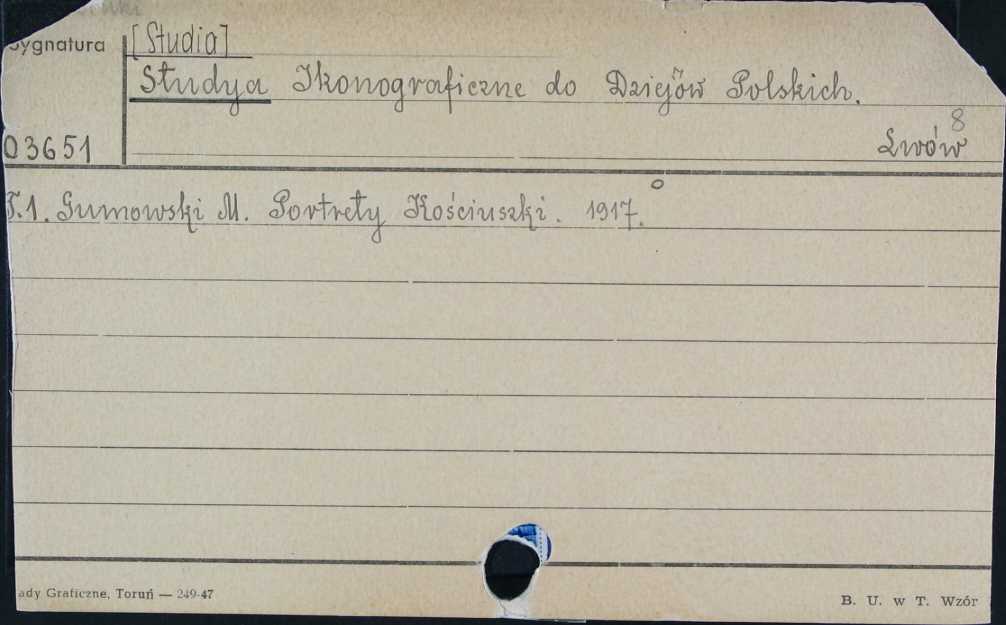 Sygnatura [Studia]
Studya Ikonograficzne do Dziejów Polskich.
8
03651 Lwów
T.1. Gumowski M. Portrety Kościuszki. 1917.
ady Graficzne, Toruń — 249-47
B. U. w T. Wzór